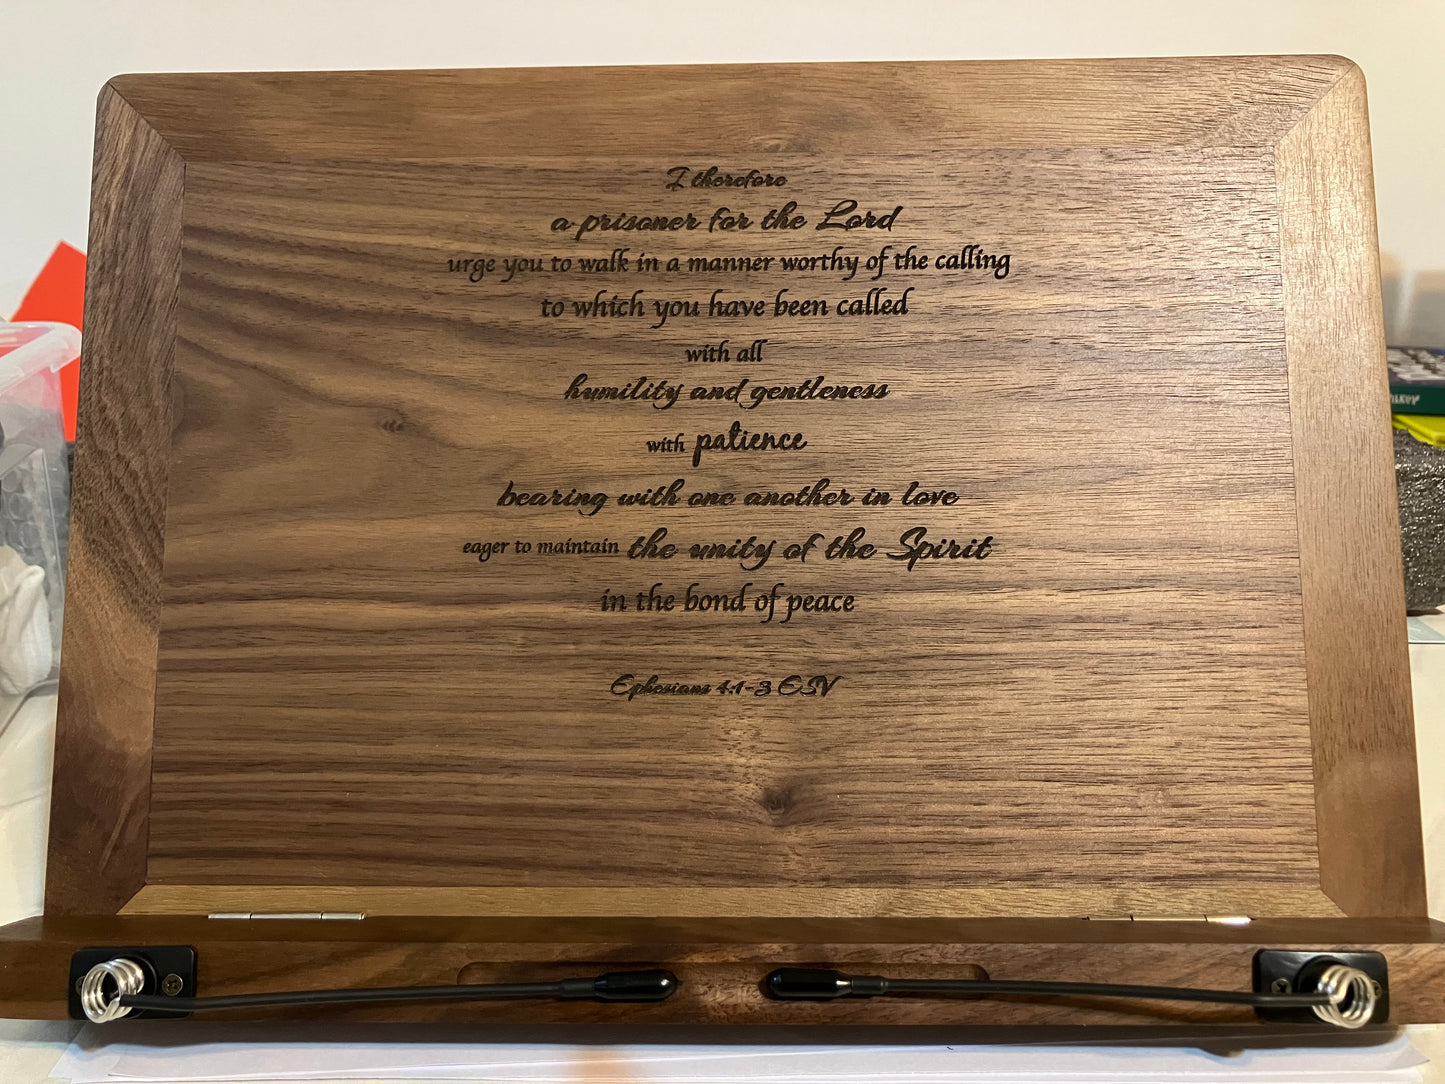 I therefore
a prisoner for the Lord
urge you to walk in a manner worthy of the calling
to which you have been called
with all
humility and gentleness
with patience
bearing with one another in love
eager to maintain the unity of the Spirit
in the bond of peace
Ephesians 4:1-3 ESV